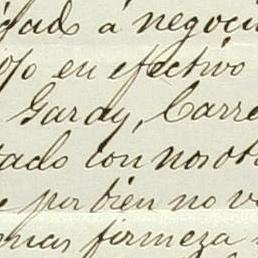 dado á negoci
% en efectivo
Garay, Carre
tado con nosot
e por bien no v
mas firmeza